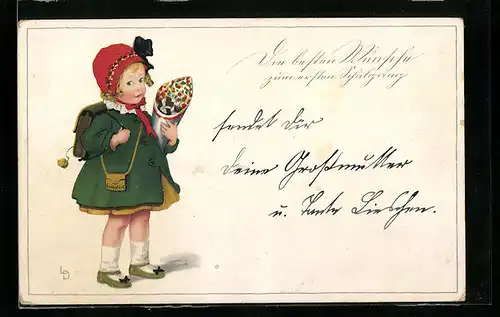 Die besten Wünsche
zum ersten Schulgang
sendet Dir
Deine Großmutter
u. Tante Lieschen.
LB